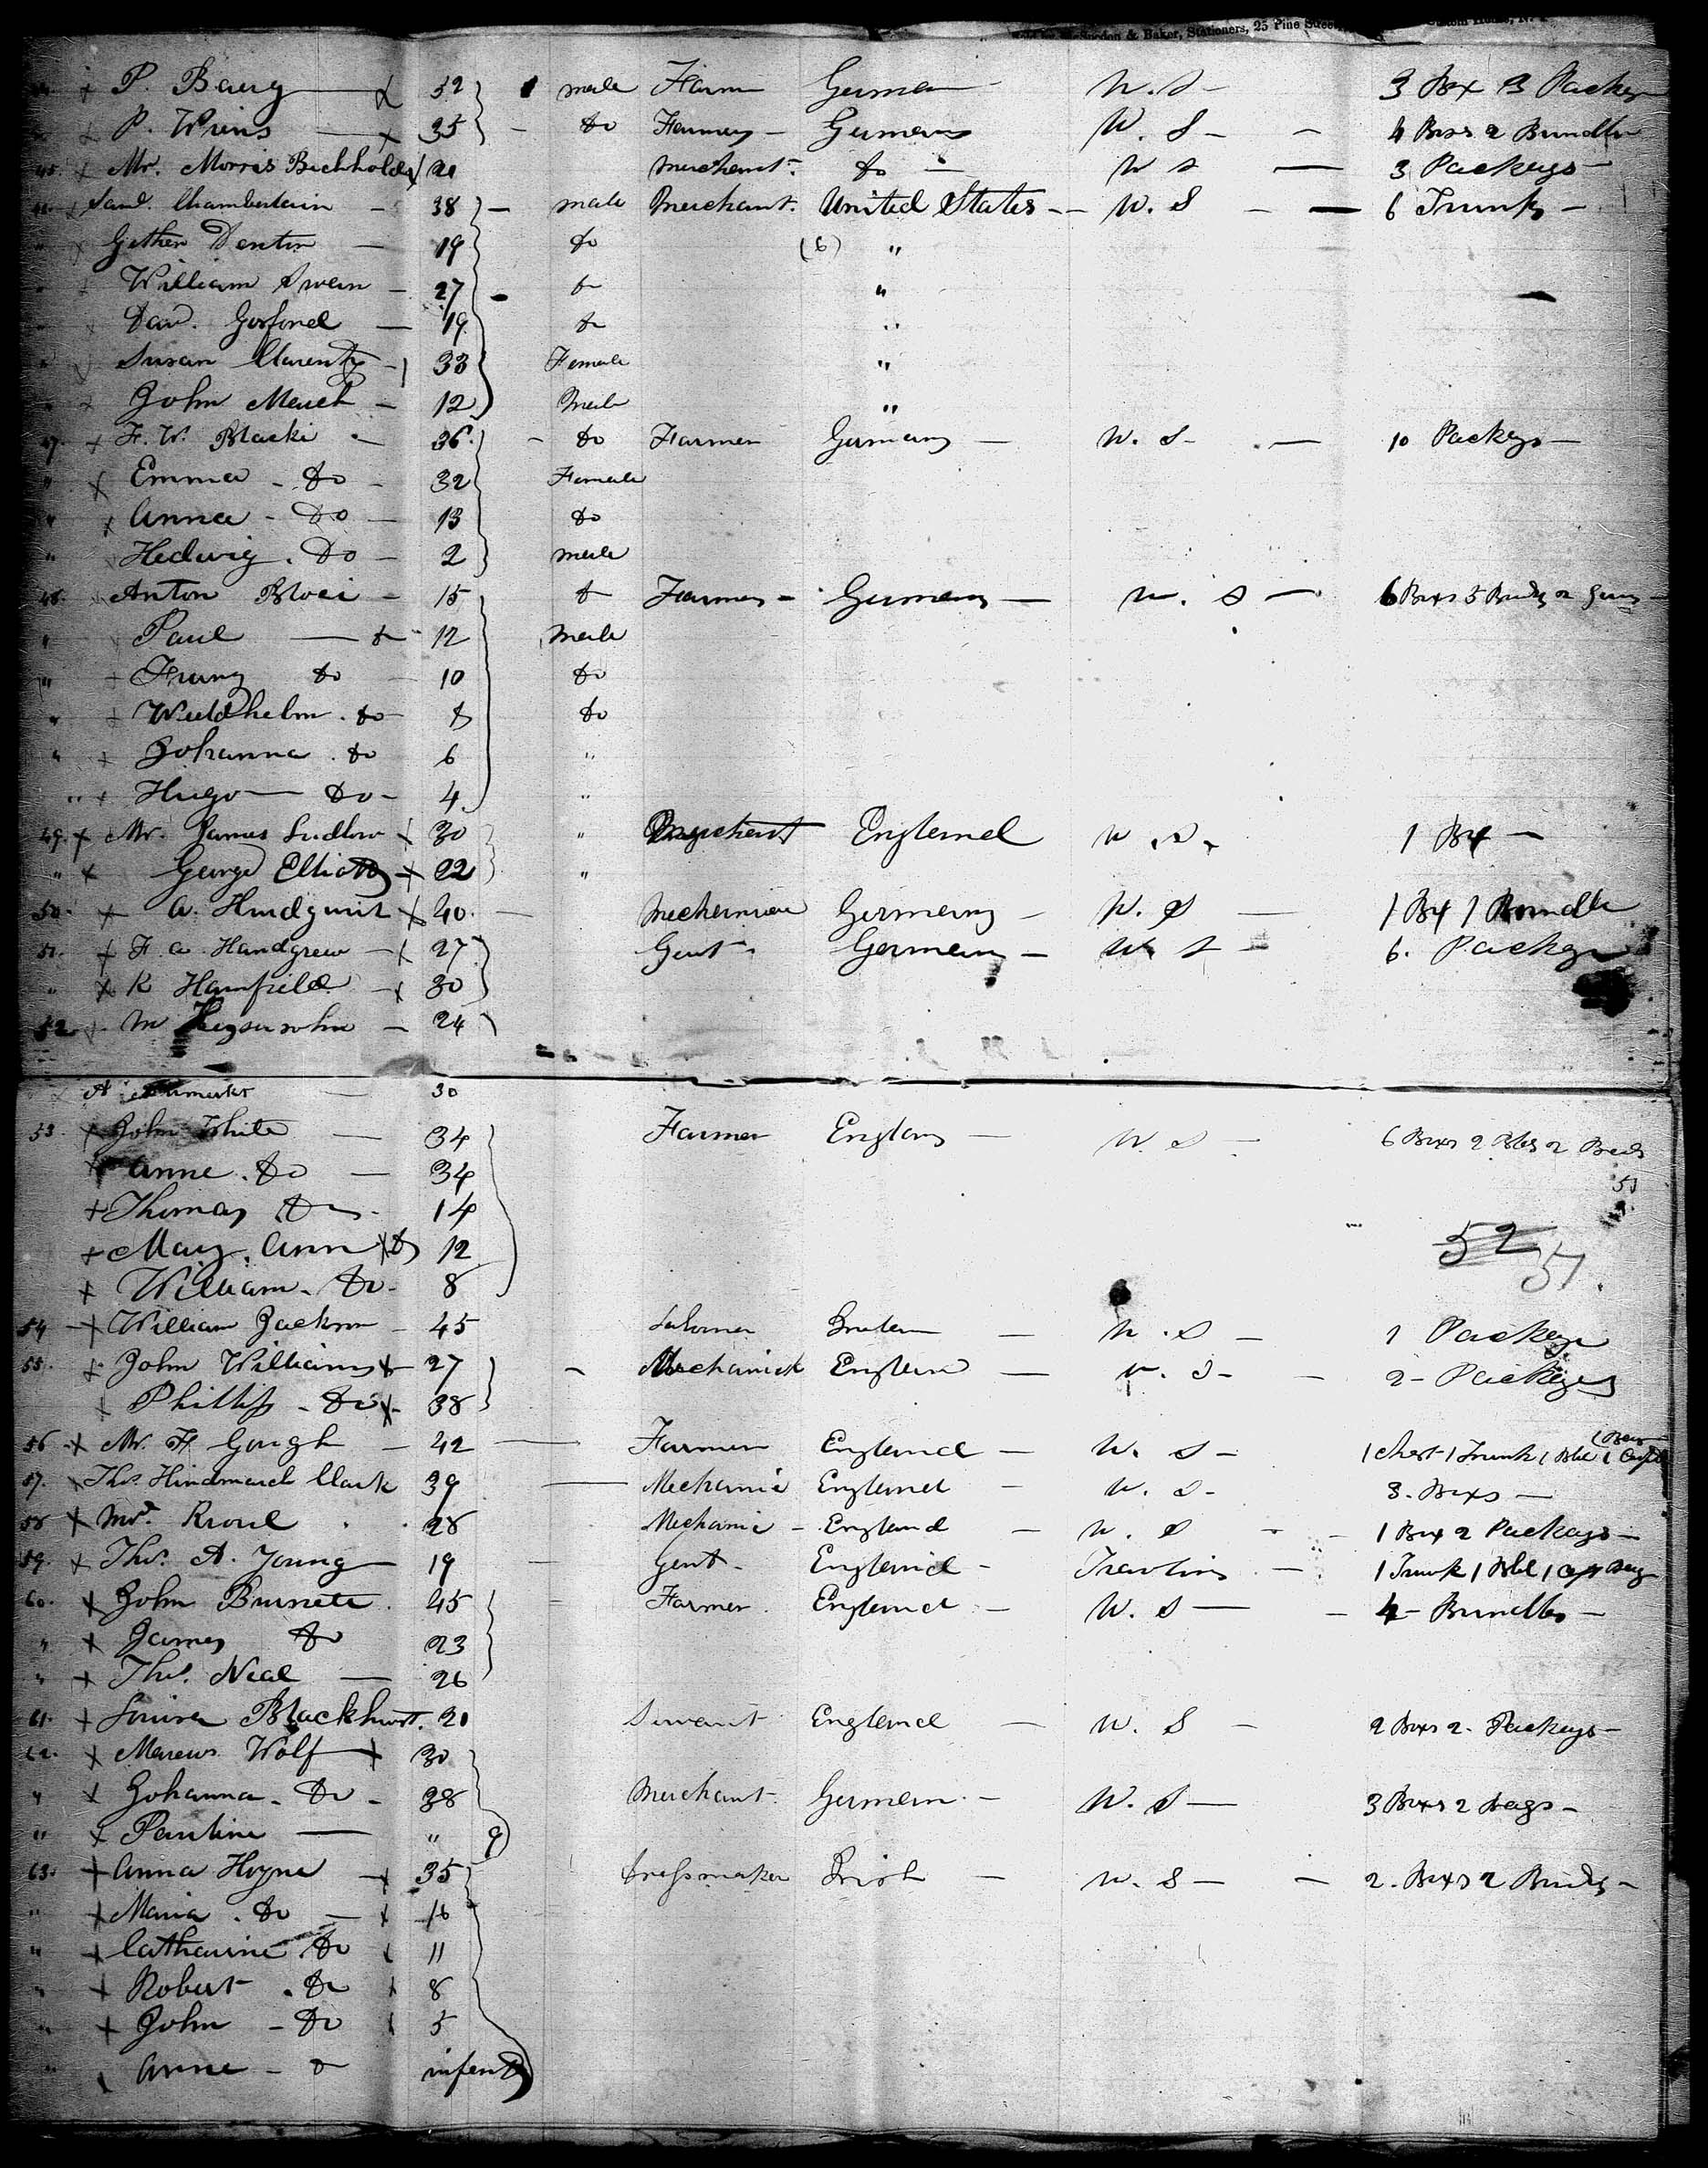 & Baker, Stationers, 25 Pine Street, Custom House, N.
P. Baug 32 male Farm German W.S 3 Box 3 Packag
P. Wiens 35 do Farmer Germany W. S 4 Boxs 2 Bundles
45. Mr. Morris Buchholds 21 Merchant do W S 3 Packags
Saml. Chamberlain 38 male Merchant. United States W. S 6 Trunks
" Denton 19 do (6) "
" William Swain 27 do "
" Dav. 19 do "
" Susan 33 Female "
" John March 12 Male "
47. F. W. Blacki 36 do Farmer Germany W. S 10 Packags
" Emma do 32 Female
" Anna Do 13 do
" Hedwig. Do 2 male
48. Anton Bloei 15 do Farmer Germany W. S 6 Boxs 5 Bndls 2 Guns
" Paul do 12 male
" Franz do 10 do
" do 8 do
" Johanna. do 6 "
" Hugo Do 4 "
49. Mr. James Ludlow 30 " Merchant England W. S. 1 Box
" George Elliott 22 "
50. A. 40. Germany W. S 1 Box 1 Bundle
51. F. A. Handgrew 27 Gent. Germany W S 6. Packags
" K Hamfield 30
52 M 24
A 30
53. John White 34 Farmer England W. S 6 Boxs 2 Bbls 2 Beds
Anne. Do 34
51
Thomas Do 14
Mary. Ann Do 12
52 51.
William. Do 8
54 William Jackson 45 Laborer W. S 1 Package
55. John Williams 27 Mechanick England W. S 2 Packages
Phillip Do 38
56 Mr. H. Gough 42 Farmer England W. S 1 Chest 1 Trunk 1 Bbl
57. Thos. Hindmarch Clark 39 Mechanic England W. S 3. Boxs
58 28 Mechanic England W. S 1 Box 2 Packags
59. Thos. A. Young 19 Gent England 1 Trunk 1 Bbl 1 Cpt Bag
60. John Burnett 45 Farmer. England W. S 4 Bundles
" James Do 23
" Thos. Neal 26
61. Louisa Blackhurst. 21 Servant England W. S 2 Boxs 2 Packags
62. Marcus Wolf 30
" Johanna. Do 38 Merchant German. W. S 3 Boxs 2 bags
" Pauline " 9
63. Anna Hoyne 35 Dressmaker Irish W. S 2. Boxs 2 Bndls
" Maria. Do 16
" Catharine Do 11
" Robert. Do 8
" John Do 5
" Anne infant